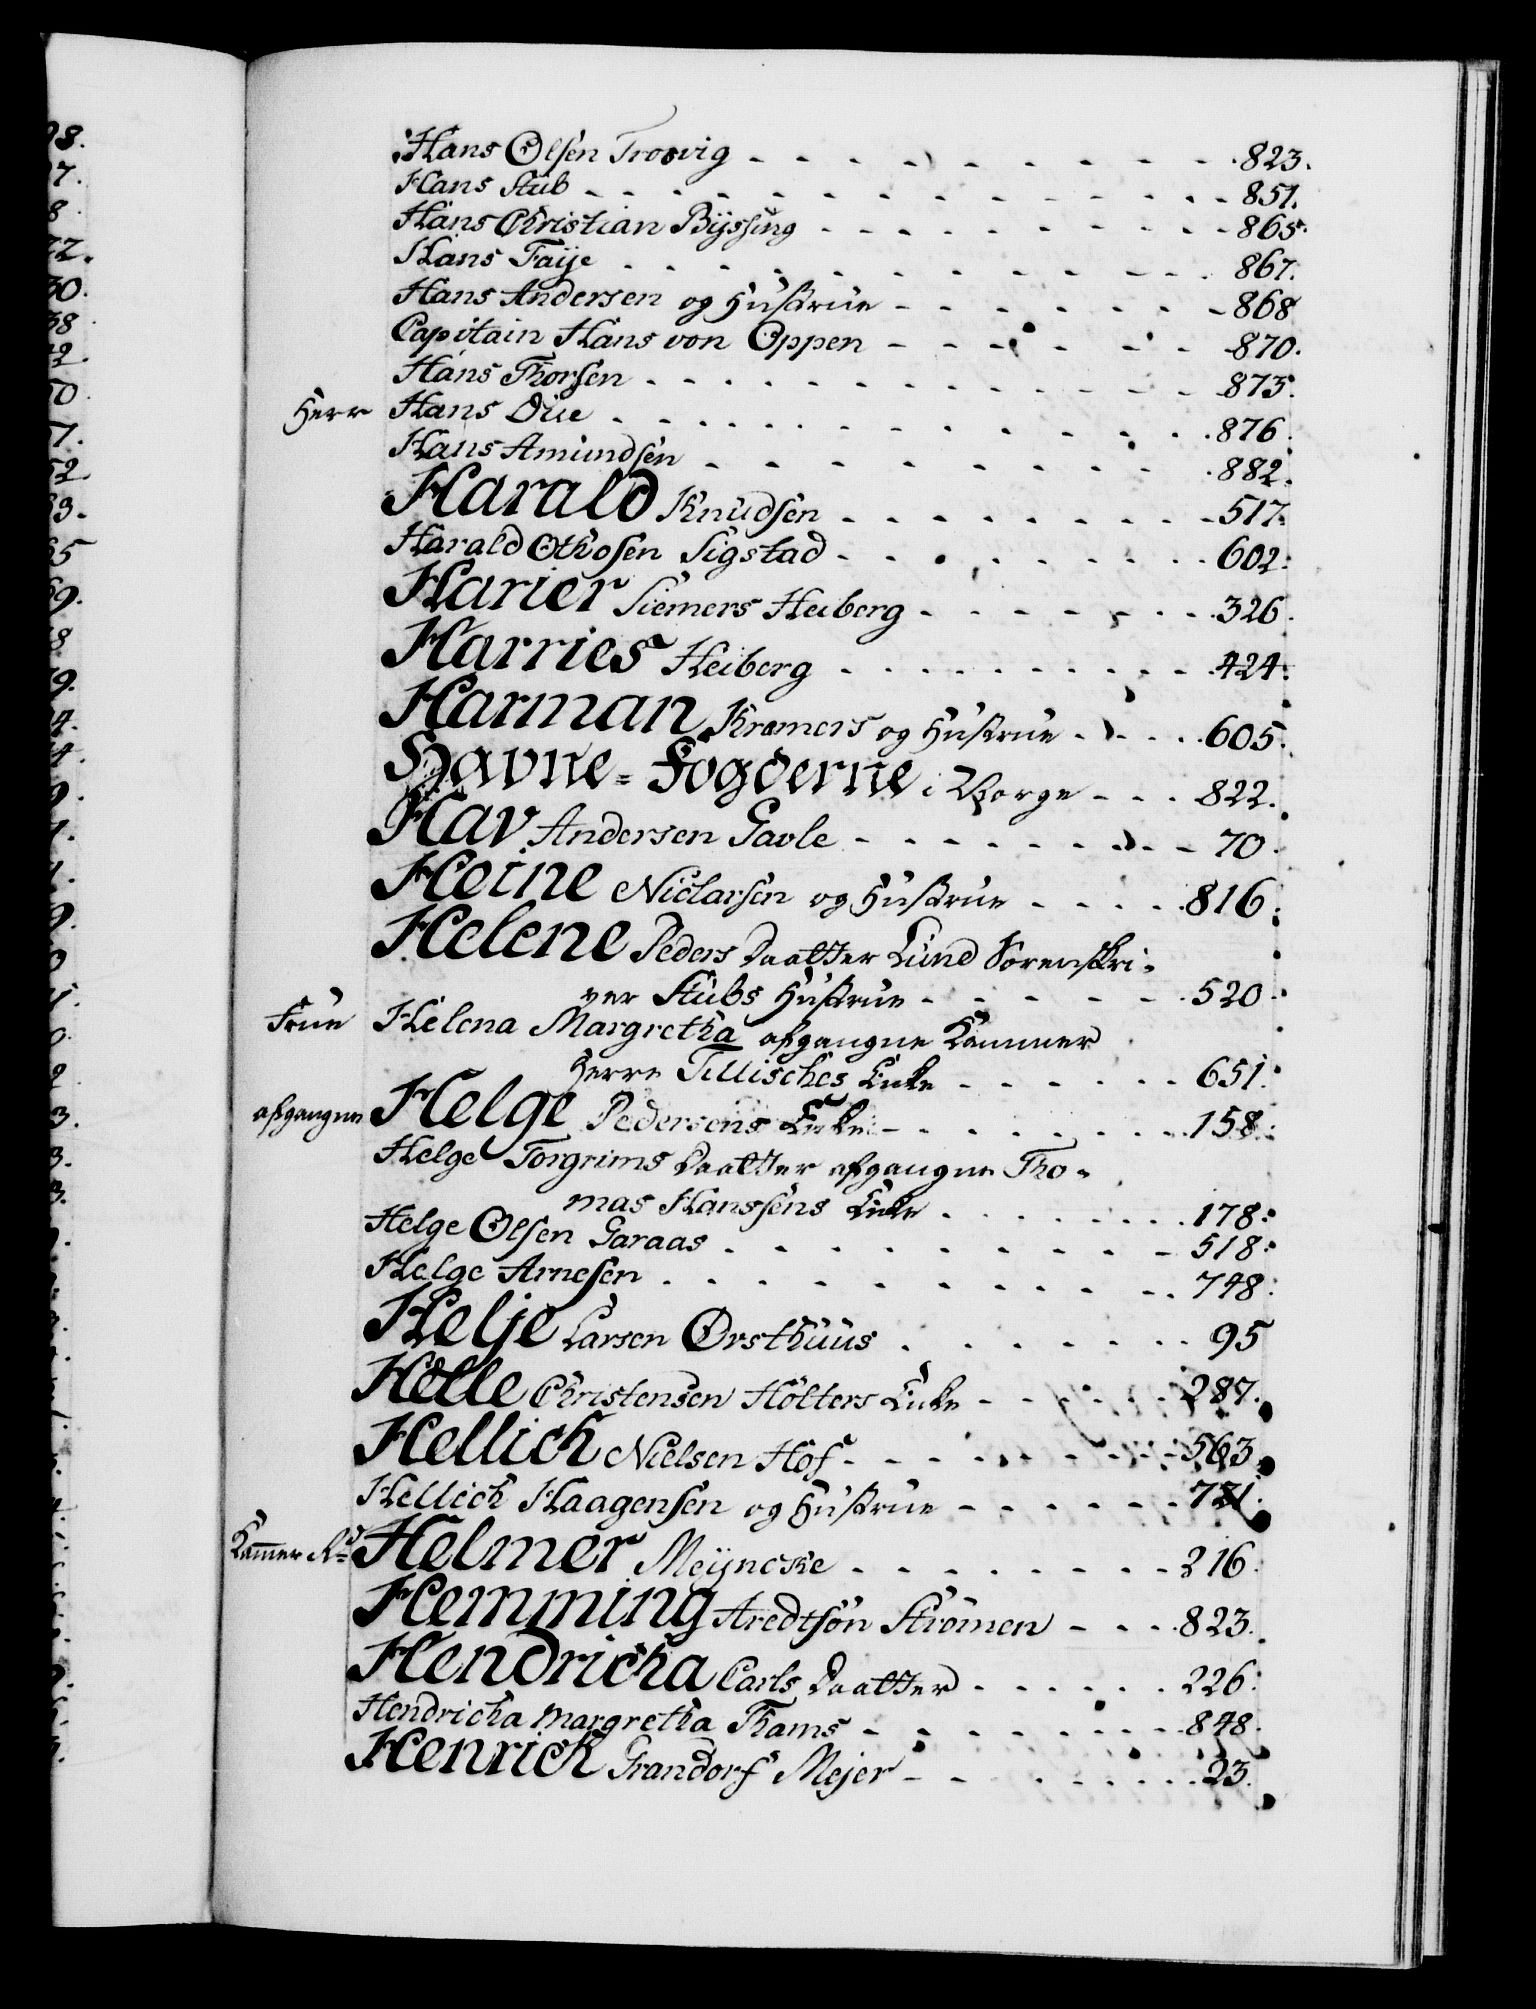 Hans Olsen Trosvig - - - - - - - - - - 823.
Hans Stub - - - - - - - - - - - - 851.
Hans Christian Bÿssing - - - - - - - - - 865.
Hans Faÿe - - - - - - - - - - - - 867.
Hans Andersen og Hustrue - - - - - - - 868
Capitain Hans von Oppen - - - - - - 870.
Hans Thorsen - - - - - - - - - - - - 873.
Herr Hans Due - - - - - - - - - - - - 876.
Hans Amundsen - - - - - - - - - - 882.
Harald Knudsen - - - - - - - - - 517.
Harald Othosen Sigstad - - - - - - - - 602.
Harier Siemers Heiberg - - - - - - - 326.
Harries Heiberg - - - - - - - - - 424.
Harman Kramers og Hustrue - - - - 605.
Havne-Fogderne i Norge - - - 822.
Hav Andersen Gavle - - - - - - - - 70.
Heine Niclarsen og Hustrue - - - - 816.
Helene Peders Daatter Lund Sorenskri-
ver Stubs Hustrue - - - - - - 520.
Frue Helena Margretha afgangne Kammer
Herre Tillisches Enke - - - - - - 651.
afgangne Helge Pedersens Enke - - - - - - - - 158.
Helge Torgrims Daatter afgangne Tho-
mas Hanssens Enke - - - - - - - 178.
Helge Olsen Garaas - - - - - - - - - - 518.
Helge Arnesen - - - - - - - - - - - 748.
Helje Larsen Ørsthuus - - - - - - - 95
Helle Christensen Holters Enke - - - - - 287.
Hellich Nielsen Hof - - - - - - - - - 563.
Hellich Haagensen og Hustrue - - - - - - 721.
Kammer Rd Helmer Meÿncke - - - - - - - - 216.
Hemming Aredtsøn Strømen - - - 823.
Hendricha Carls Daatter - - - - - - 226.
Hendricha Margretha Thams - - - - - - - - 848.
Henrich Grandorf Mejer - - - - - - - - 23.